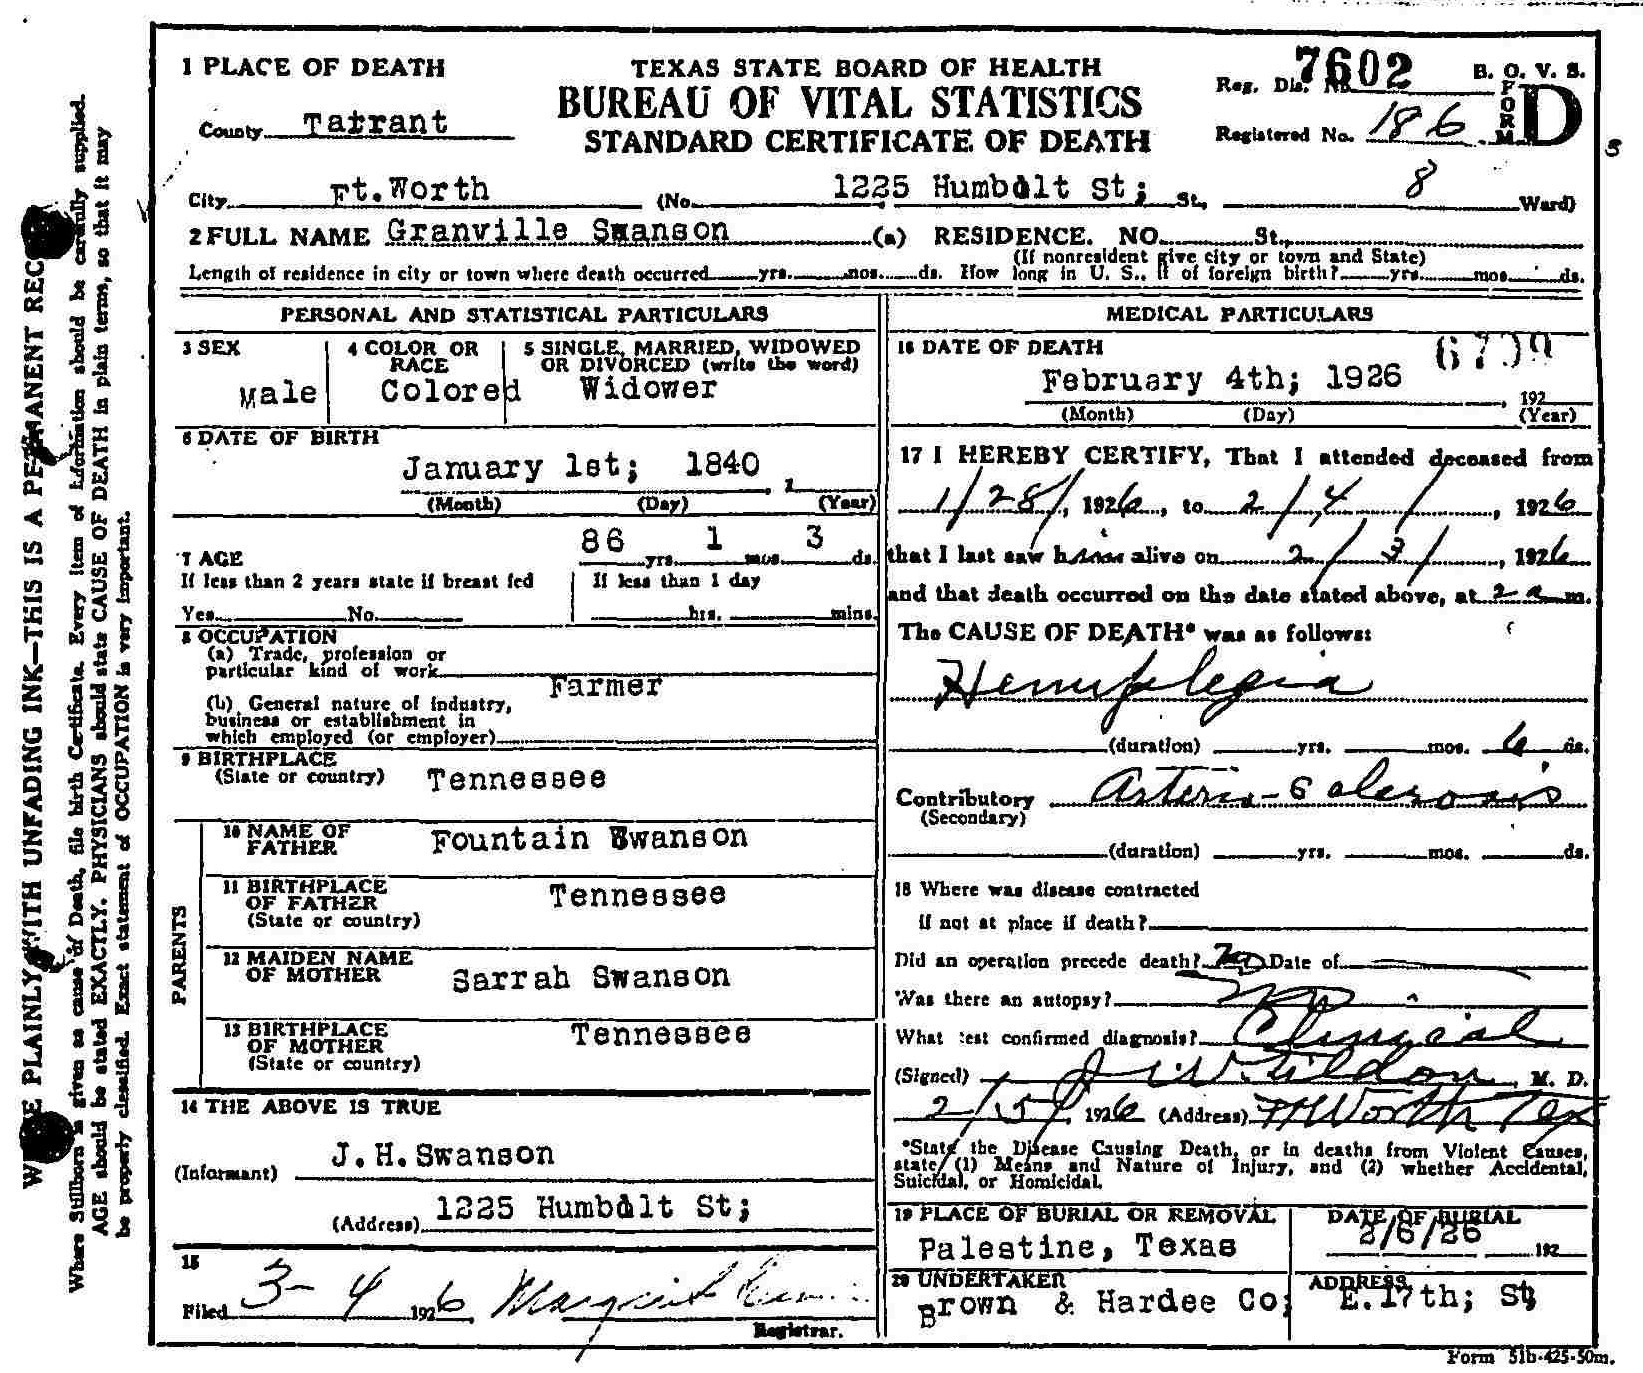 1 PLACE OF DEATH
TEXAS STATE BOARD OF HEALTH
BUREAU OF VITAL STATISTICS
STANDARD CERTIFICATE OF DEATH
Reg. Dis. No. 7602
B. O. V. S.
FORM D
County Tarrant
Registered No. 186
City Ft. Worth (No. 1225 Humbolt St; St., 8 Ward)
2 FULL NAME Granville Swanson (a) RESIDENCE. NO. St.,
(If nonresident give city or town and State)
Length of residence in city or town where death occurred yrs. mos. ds. How long in U. S., if of foreign birth? yrs. mos. ds.
PERSONAL AND STATISTICAL PARTICULARS
3 SEX
Male
4 COLOR OR RACE
Colored
5 SINGLE, MARRIED, WIDOWED
OR DIVORCED (write the word)
Widower
6 DATE OF BIRTH
January 1st; 1840
(Month) (Day) (Year)
7 AGE 86 yrs. 1 mos. 3 ds.
If less than 2 years state if breast fed
Yes No
If less than 1 day
hrs. mins.
8 OCCUPATION
(a) Trade, profession or
particular kind of work Farmer
(b) General nature of industry,
business or establishment in
which employed (or employer)
9 BIRTHPLACE
(State or country) Tennessee
PARENTS
10 NAME OF
FATHER Fountain Swanson
11 BIRTHPLACE
OF FATHER
(State or country) Tennessee
12 MAIDEN NAME
OF MOTHER Sarrah Swanson
13 BIRTHPLACE
OF MOTHER
(State or country) Tennessee
14 THE ABOVE IS TRUE
(Informant) J.H.Swanson
(Address) 1225 Humbolt St;
15
Filed 3-4 1926 Margaret
Registrar.
MEDICAL PARTICULARS
16 DATE OF DEATH
6709
February 4th; 1926 192
(Month) (Day) (Year)
17 I HEREBY CERTIFY, That I attended deceased from
1/28/, 1926, to 2/4/, 1926
that I last saw him alive on 2/3/, 1926
and that death occurred on the date stated above, at 2 a m.
The CAUSE OF DEATH* was as follows:
Hemiplegia
(duration) yrs. mos. 6 ds.
Contributory Arterio-Sclerosis
(Secondary)
(duration) yrs. mos. ds.
18 Where was disease contracted
if not at place if death?
Did an operation precede death? No Date of
Was there an autopsy? No
What test confirmed diagnosis? Clinical
(Signed) M. D.
2/5/ 1926 (Address) Ft Worth Tex
*State the Disease Causing Death, or in deaths from Violent Causes,
state (1) Means and Nature of Injury, and (2) whether Accidental,
Suicidal, or Homicidal.
19 PLACE OF BURIAL OR REMOVAL
Palestine, Texas
DATE OF BURIAL
2/6/26 192
20 UNDERTAKER
Brown & Hardee Co;
ADDRESS
E.17th; St;
Form 51b-425-50m.
WRITE PLAINLY WITH UNFADING INK—THIS IS A PERMANENT RECORD
Where Stillborn is given as cause of Death, file birth Certificate. Every item of information should be carefully supplied.
AGE should be stated EXACTLY. PHYSICIANS should state CAUSE OF DEATH in plain terms, so that it may
be properly classified. Exact statement of OCCUPATION is very important.